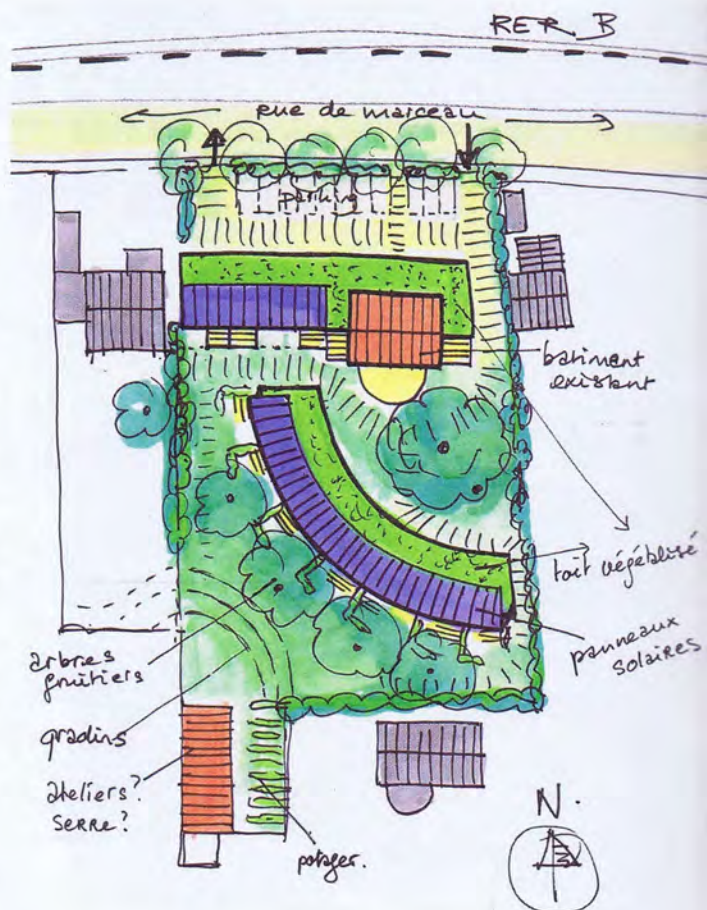 RER B
rue de marceau
parking
batiment
existant
toit végétalisé
panneaux
solaires
arbres
fruitiers
gradins
ateliers?
SERRE?
potager.
N.